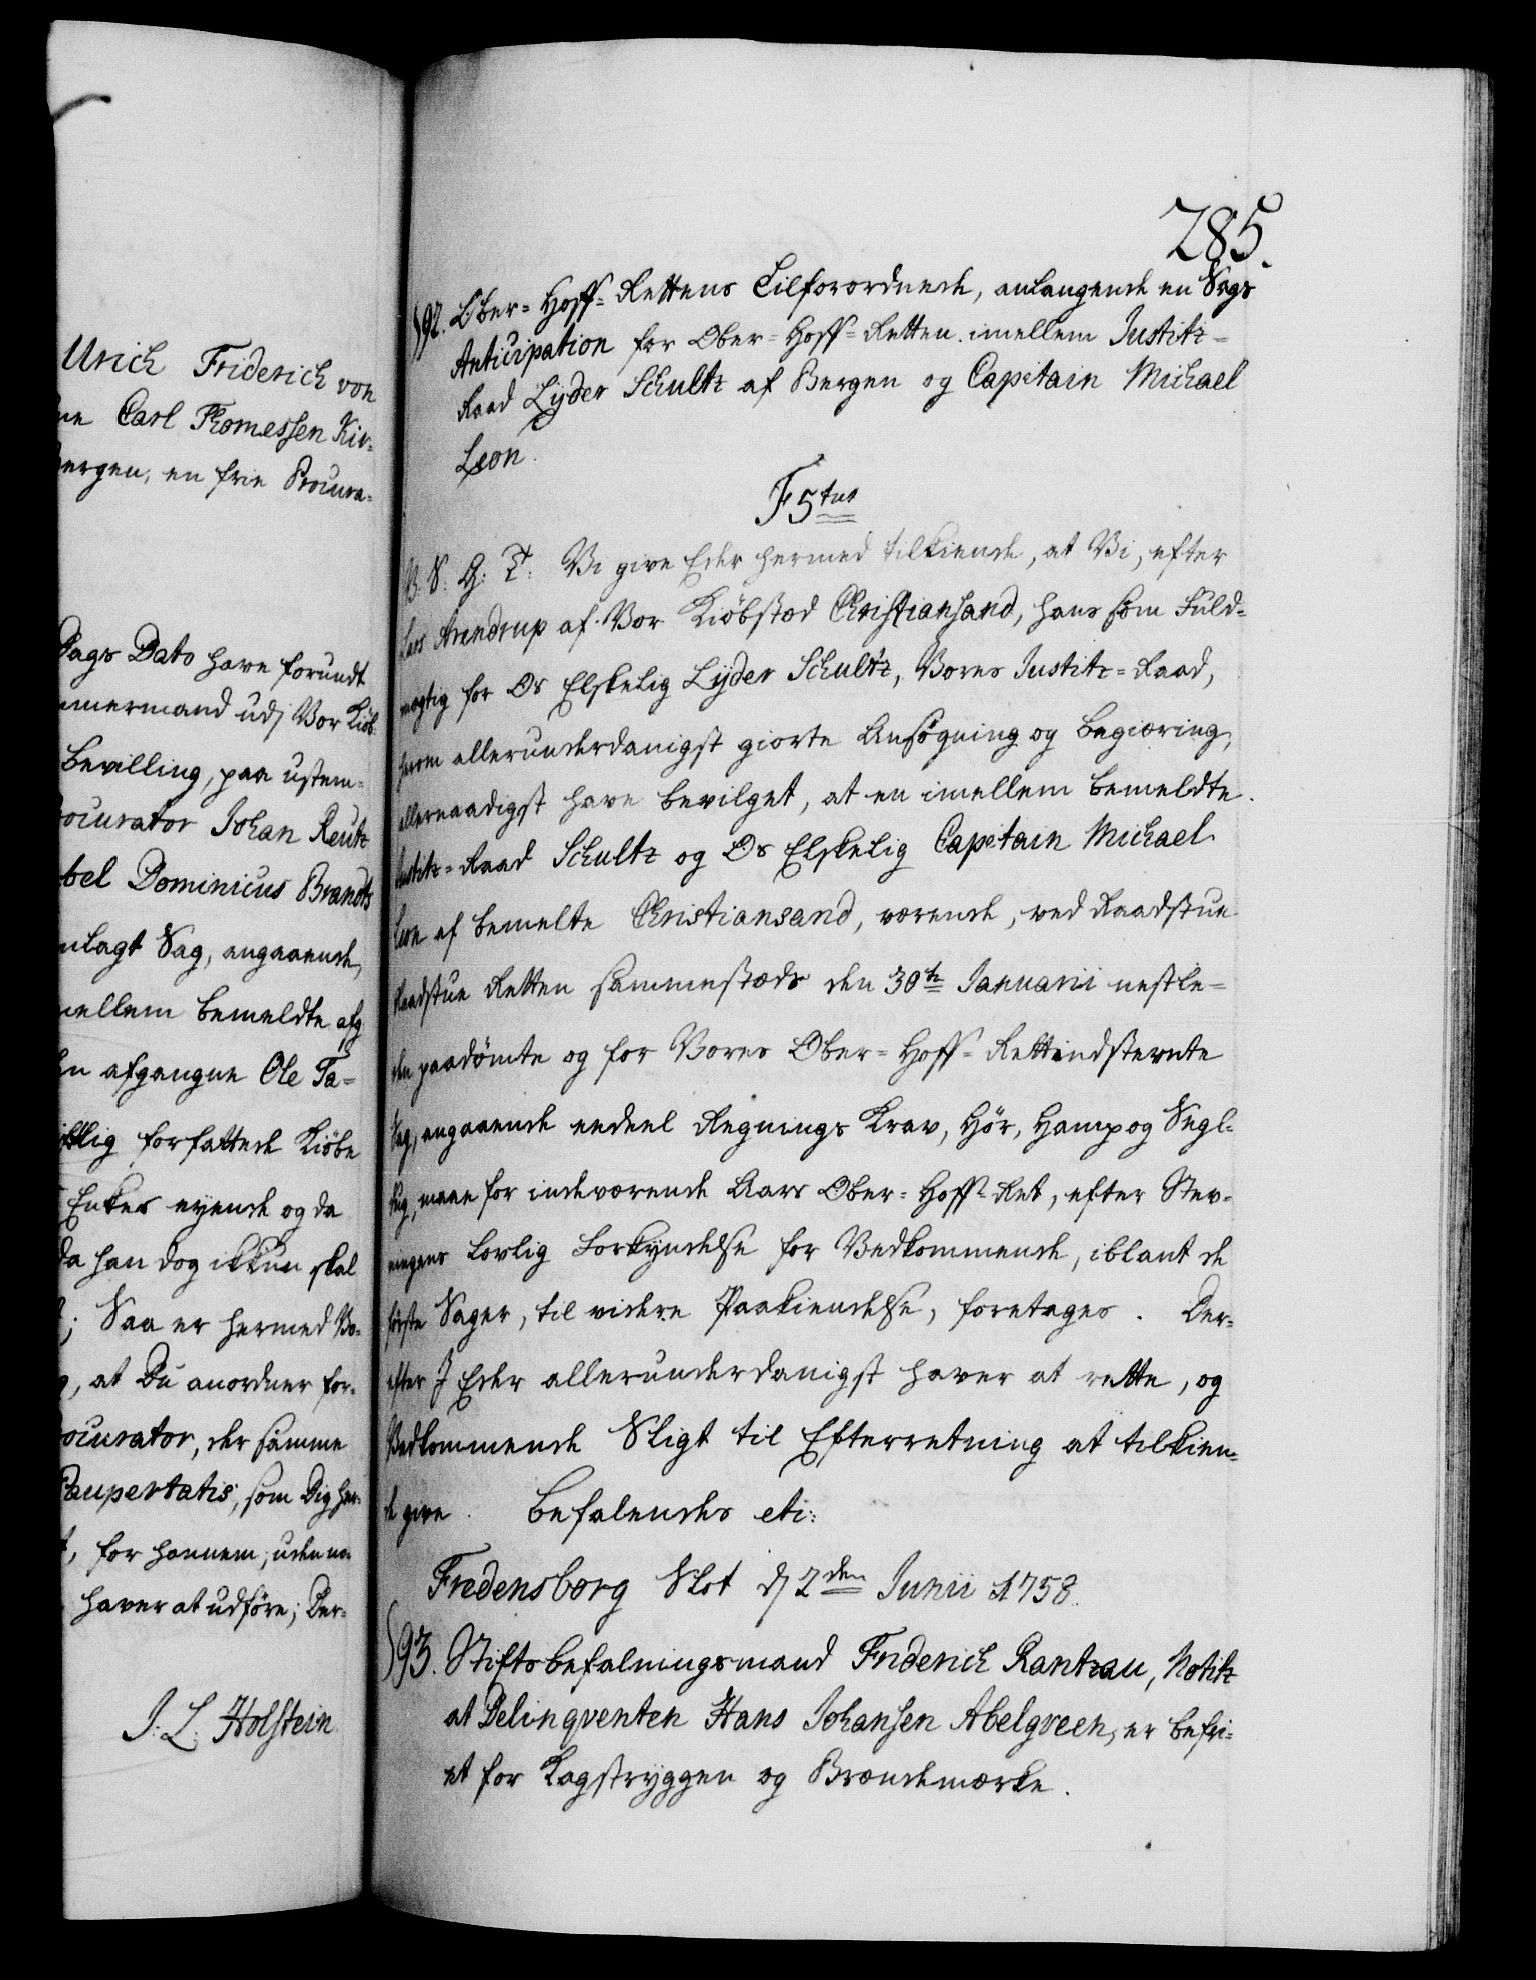 Urich Friderich von
ne Carl Thomessen Kir-
bergen, en frie Procura-
Dags Dato have forundt
mmermand udj Vor Kiøb-
Bevilling, paa ustem-
ocurator Johan Reutz
bel Dominicus Brandts
nlagt Sag, angaaende,
mellem bemeldte afg
en afgangne Ole Ta-
forfattede Kiøbe
Enkes eyende og da
da han dog ikkun skal
; Saa er hermed Vo-
, at Du anordner for-
ocurator, der samme
Paupertatis, som Dig her-
, for hannem, uden no-
haver at udføre; Der-
J: L: Holstein.
285.
§92. Ober-Hoff-Rettens Tilforordnede, anlangende en Sags
Anticipation for Ober-Hoff-Retten imellem Justitz-
Raad Lyder Schultz af Bergen og Capitain Michael
Leon.
F 5tus
V. S. G: T: Vi give Eder hermed tilkiende, at Vi, efter
Lars Arendrup af Vor Kiøbstæd Christiansand, hans som Fuld-
mægtig for Os Elskelig Lyder Schultz, Vores Justitz-Raad,
herom allerunderdanigst giorte Ansøgning og Begiæring,
allernaadigst have bevilget, at en imellem bemeldte
Justitz-Raad Schultz og Os Elskelig Capitain Michael
Leon af bemelte Christiansand, værende, ved Raadstue
Raadstue Retten sammestæds den 30te Januarii nestle-
den paadømte og for Vores Ober-Hoff-Rett indstevnte
Sag, angaaende eendeel Regnings Krav, Hør, Hamp og Segl-
dug, maae for indeværende Aars Ober-Hoff-Ret, efter Stev-
ningens Lovlig Forkyndelse for Vedkommende, iblant de
første Sager, til videre Paakiendelse, foretages. Der-
efter I Eder allerunderdanigst haver at rette, og
Vedkommende Sligt til Efterretning at tilkien-
de give. Befalendes etc:
Fredensborg Slot d 2den Junii 1758.
§93. Stiftsbefalningsmand Friderich Rantzau, Notitz
at Delinqventen Hans Johansen Abelgreen, er befri-
et for Kagstryggen og Brændemærke.